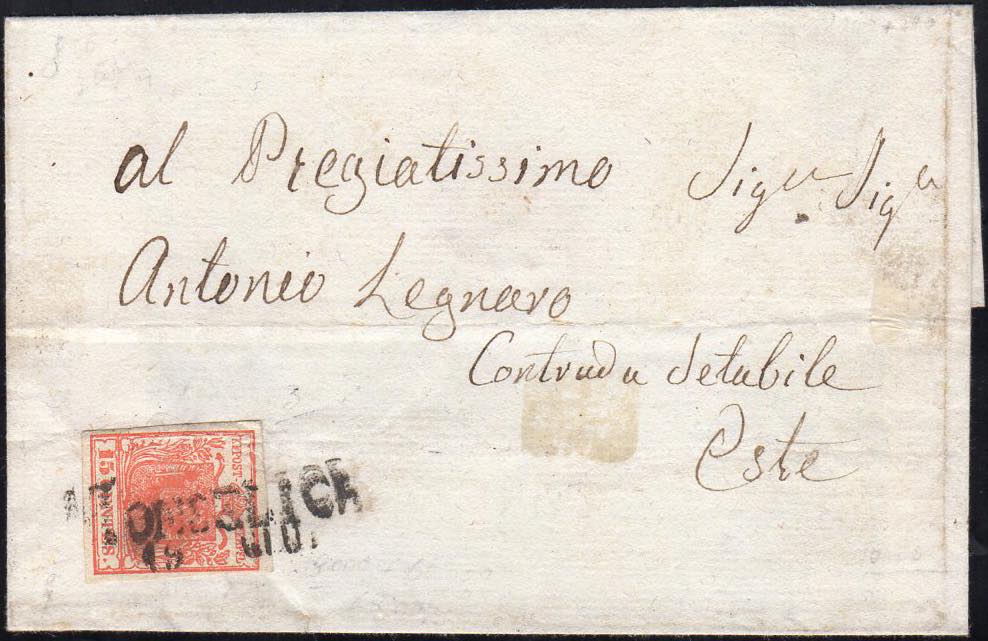 al Pregiatissimo Sigr Sigr
Antonio Legnaro
Contrada Setabile
Este
15 CENTES.
MONSELICE
15 GIUG